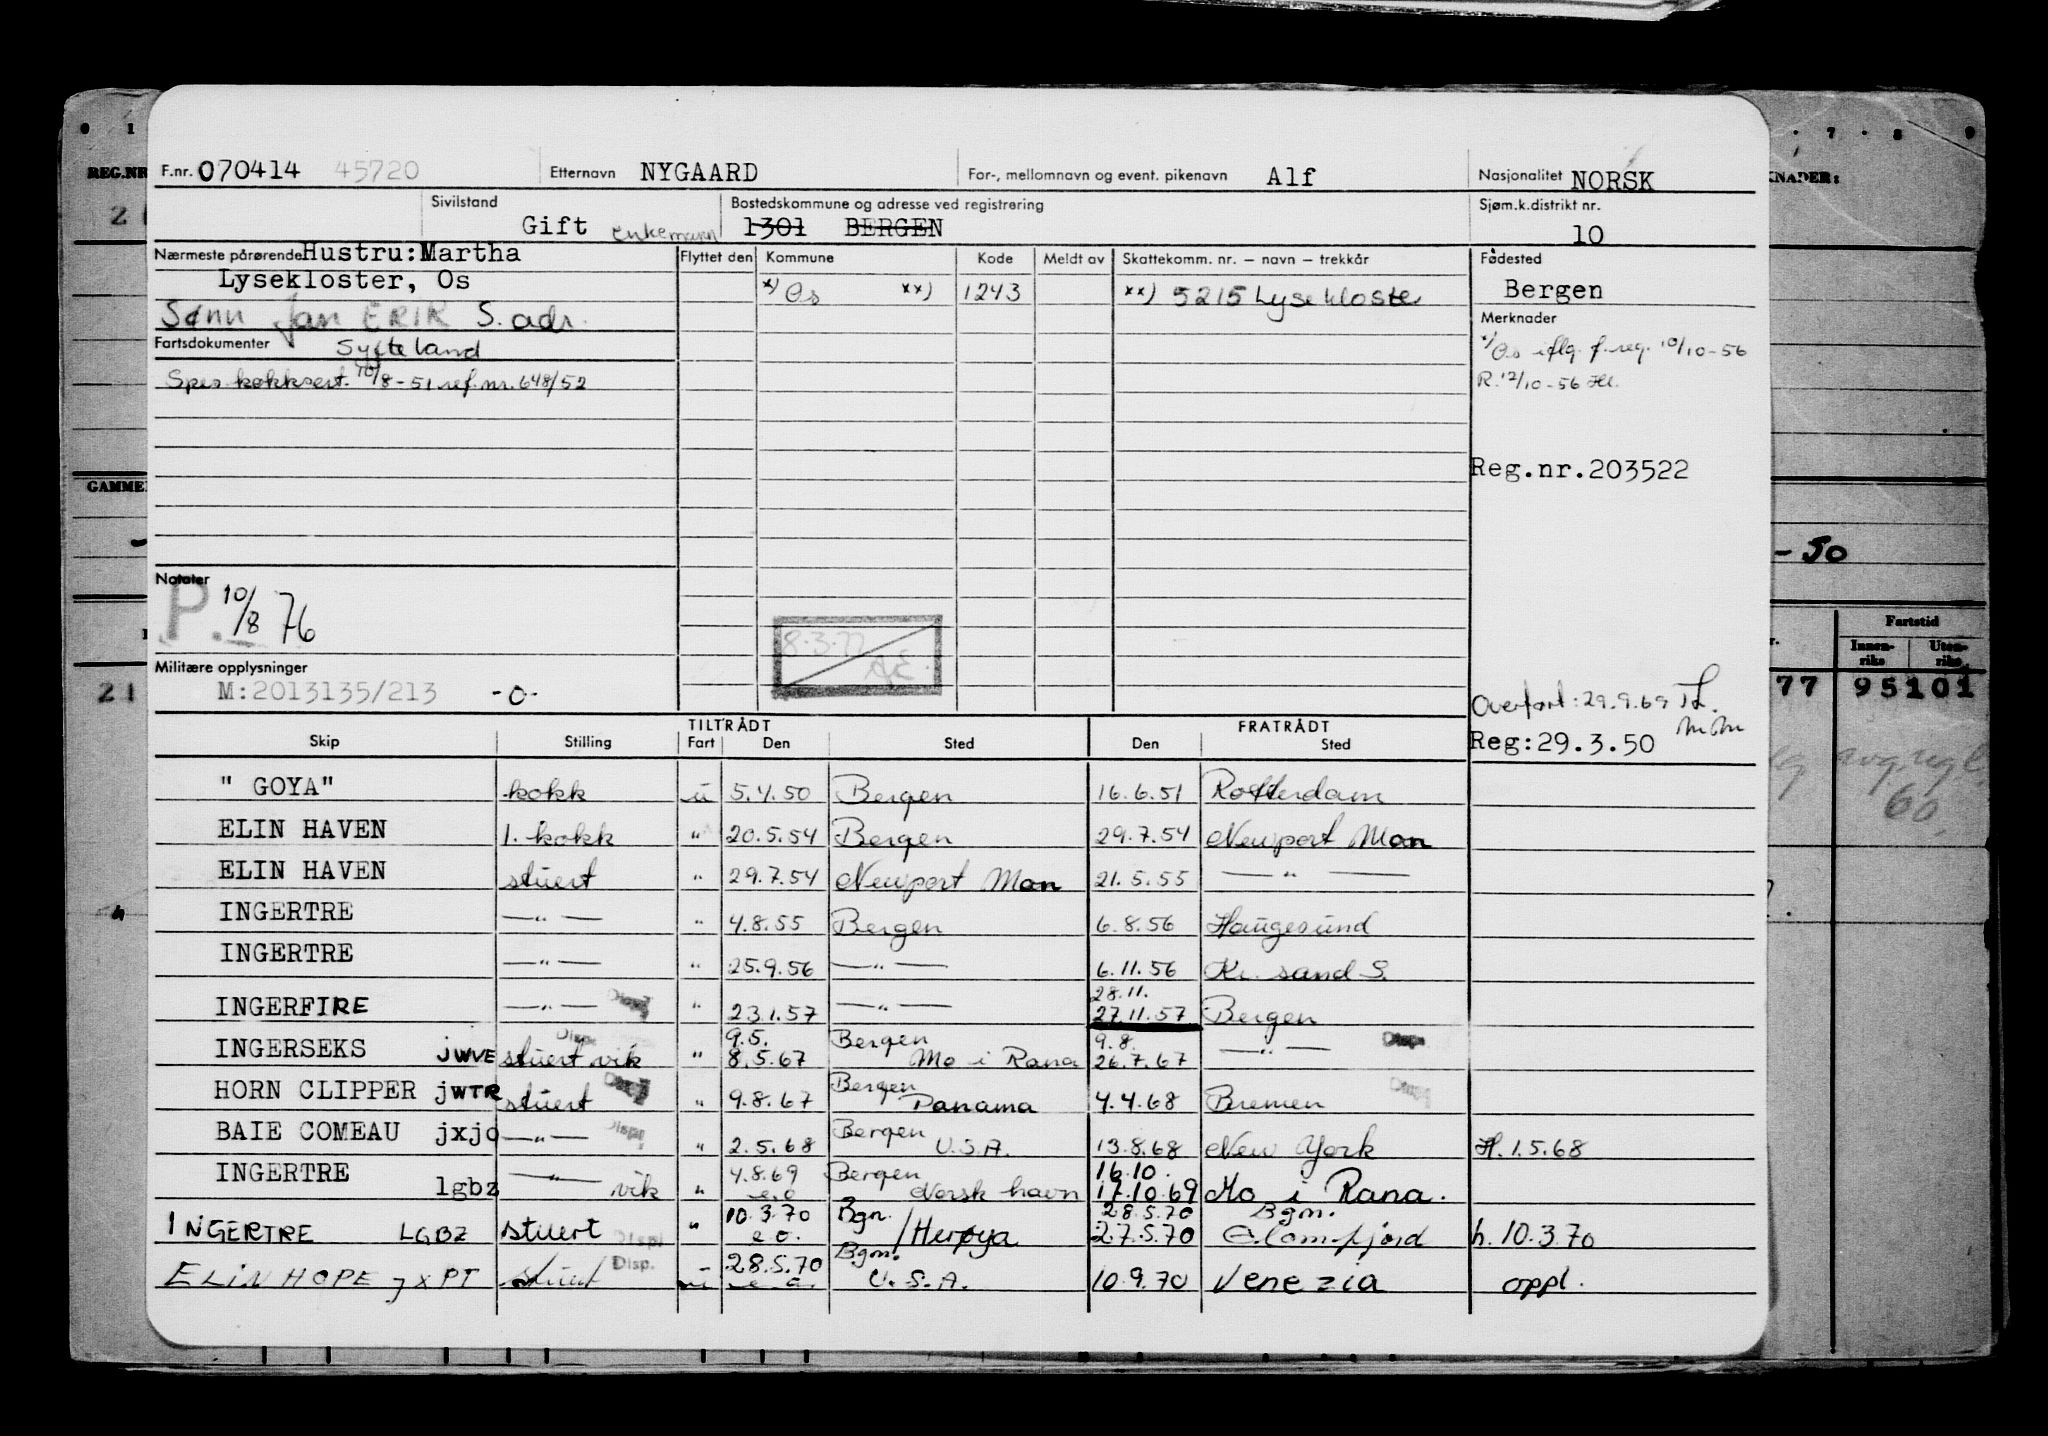 F.nr. 070414 45720 Etternavn NYGAARD For-, mellomnavn og event. pikenavn Alf Nasjonalitet NORSK
Sivilstand Gift enkemann Bostedskommune og adresse ved registrering 1301 BERGEN Sjøm.k.distrikt nr. 10
Nærmeste pårørende Hustru: Martha
Lysekloster, Os
Sønn Jan ERIK S. adr.
Flyttet den Kommune Kode Meldt av Skattekomm. nr. – navn – trekkår Fødested
x) Os xx) 1243 xx) 5215 Lysekloster Bergen
Fartsdokumenter Syfteland
Spes. kokksert. 10/8-51 ref. nr. 648/52
Merknader
x) Os iflg. f. reg. 10/10-56
R. 12/10-56 Hl.
Reg.nr.203522
Notater
P. 10/8 76
8.3.77
Militære opplysninger
M:2013135/213 -0-
Overført: 29.9.69
Reg:29.3.50
TILTRÅDT FRATRÅDT
Skip Stilling Fart Den Sted Den Sted
"GOYA" kokk u 5.4.50 Bergen 16.6.51 Rotterdam
ELIN HAVEN 1. kokk " 20.5.54 Bergen 29.7.54 Newport Mon
ELIN HAVEN stuert " 29.7.54 Newport Mon 21.5.55 — " —
INGERTRE — " — " 4.8.55 Bergen 6.8.56 Haugesund
INGERTRE — " — " 25.9.56 — " — 6.11.56 Kr. sand S.
28.11.
INGERFIRE — " — " 23.1.57 — " — 27.11.57 Bergen
Disp. 9.5. Bergen 9.8.
INGERSEKS jWVE stuert vik " 8.5.67 Mo i Rana 26.7.67 — " — Disp.
Bergen
HORN CLIPPER jWTR stuert " 9.8.67 Panama 4.4.68 Bremen
Bergen
BAIE COMEAU jxjo — " — Disp. " 2.5.68 U.S.A. 13.8.68 New York H. 1.5.68
INGERTRE — " — 4.8.69 Bergen 16.10.
lgbz vik " e.o Norsk havn 17.10.69 Mo i Rana.
10.3.70 Bgn. 28.5.70 Bgn.
INGERTRE LGBZ stuert Disp. " e o. /Herøya 27.5.70 Glomfjord h. 10.3.70
Disp. 28.5.70 Bgn.
ELIN HOPE JXPT stuert u e o. U.S.A. 10.9.70 Venezia oppl.
REG.NR
21
GAMME
21
KNADER:
-50
Fartstid
Innen-riks Uten-riks
77 95101
60.